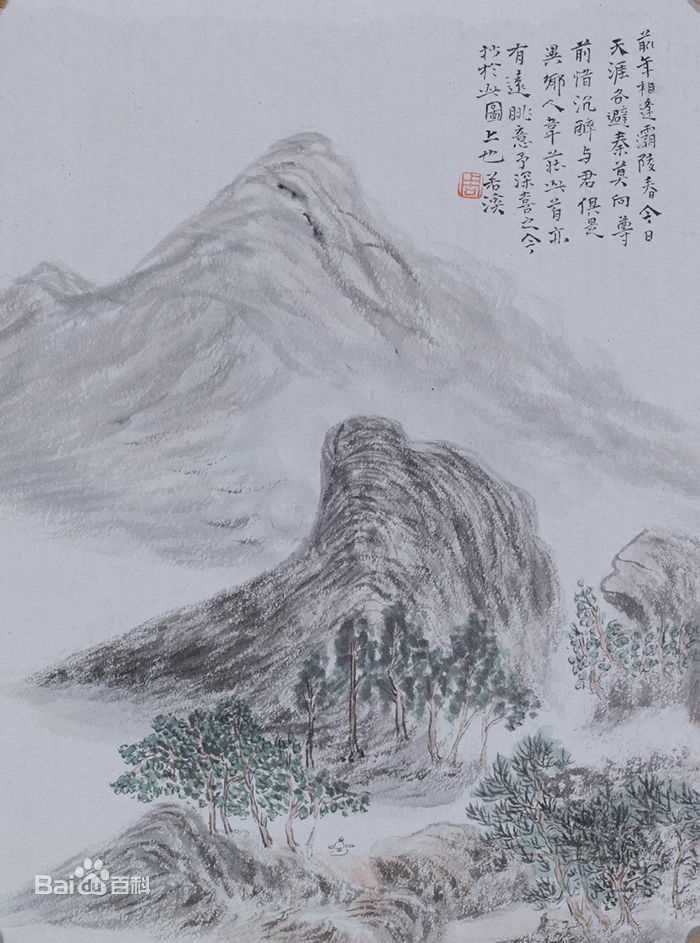 前年相逢霸陵春今日
天涯各避秦莫向尊
前惜沉醉与君俱是
異鄉人韋莊此首亦
有遠眺意予深喜之今
抄於此圖上也 若溪
Bai百科